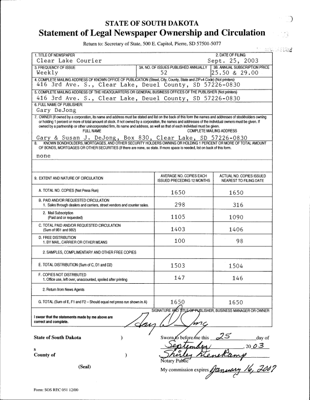 STATE OF SOUTH DAKOTA
Statement of Legal Newspaper Ownership and Circulation
Return to: Secretary of State, 500 E. Capitol, Pierre, SD 57501-5077
1. TITLE OF NEWSPAPER 2. DATE OF FILING
Clear Lake Courier Sept. 25, 2003
3. FREQUENCY OF ISSUE 3A. NO. OF ISSUES PUBLISHED ANNUALLY 3B. ANNUAL SUBSCRIPTION PRICE
Weekly 52 $25.50 & 29.00
4. COMPLETE MAILING ADDRESS OF KNOWN OFFICE OF PUBLICATION (Street, City, County, State and ZIP+4 Code) (Not printers)
416 3rd Ave. S., Clear Lake, Deuel County, SD 57226-0830
5. COMPLETE MAILING ADDRESS OF THE HEADQUARTERS OR GENERAL BUSINESS OFFICES OF THE PUBLISHER (Not printers)
416 3rd Ave. S., Clear Lake, Deuel County, SD 57226-0830
6. FULL NAME OF PUBLISHER:
Gary DeJong
7. OWNER (If owned by a corporation, its name and address must be stated and also immediately
FULL NAME COMPLETE MAILING ADDRESS
Gary & Susan J. DeJong, Box 830, Clear Lake, SD 57226-0830
8. KNOWN BONDHOLDERS, MORTGAGES, AND OTHER SECURITY HOLDERS OWNING OR HOLDING 1 PERCENT OR MORE OF TOTAL AMOUNT
OF BONDS, MORTGAGES OR OTHER SECURITIES (If there are none, so state. If more space is needed, list on back of this form.
none
9. EXTENT AND NATURE OF CIRCULATION AVERAGE NO. COPIES EACH ISSUED PRECEDING 12 MONTHS ACTUAL NO. COPIES ISSUED NEAREST TO FILING DATE
A. TOTAL NO. COPIES (Net Press Run) 1650 1650
B. PAID AND/OR REQUESTED CIRCULATION
1. Sales through dealers and carriers, street vendors and counter sales. 298 316
2. Mail Subscription
(Paid and or requested) 1105 1090
C. TOTAL PAID AND/OR REQUESTED CIRCULATION
(Sum of 9B1 and 9B2) 1403 1406
D. FREE DISTRIBUTION
1. BY MAIL, CARRIER OR OTHER MEANS 100 98
2. SAMPLES, COMPLIMENTARY AND OTHER FREE COPIES
E. TOTAL DISTRIBUTION (Sum of C, D1 and D2) 1503 1504
F. COPIES NOT DISTRIBUTED
1. Office use, left over, unaccounted, spoiled after printing 147 146
2. Return from News Agents
G. TOTAL (Sum of E, F1 and F2 - Should equal net press run shown in A) 1650 1650
I swear that the statements made by me above are
correct and complete.
SIGNATURE AND TITLE OF PUBLISHER, BUSINESS MANAGER OR OWNER
State of South Dakota ) Sworn to before me this 25 day of
September, 2003
County of )
Shirley Kienekamp
Notary Public
(Seal) My commission expires January 16, 2007
Form: SOS REC 051 12/00